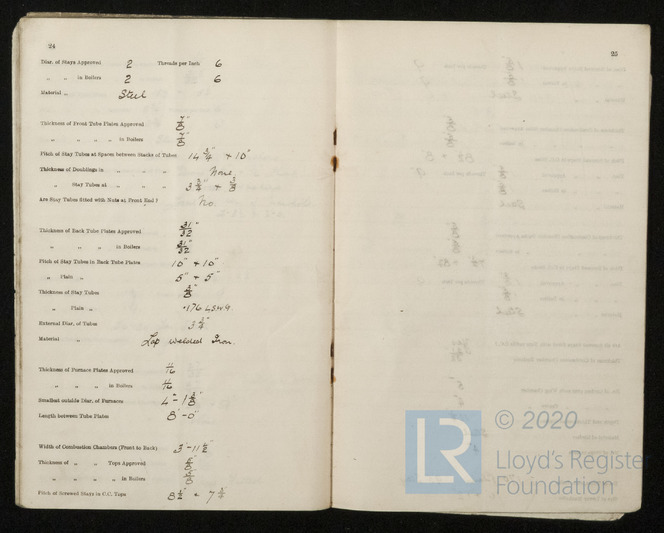 24
Diar. of Stays Approved 2 Threads per Inch 6
„ „ in Boilers 2 6
Material „ Steel
Thickness of Front Tube Plates Approved
„ „ „ „ in Boilers
Pitch of Stay Tubes at Spaces between Stacks of Tubes 14 3/4" + 10"
Thickness of Doublings in „ „ None
„ Stay Tubes at „ „ „
Are Stay Tubes fitted with Nuts at Front End ? No
Thickness of Back Tube Plates Approved 31/32"
„ „ „ in Boilers 31/32"
Pitch of Stay Tubes in Back Tube Plates 10" + 10"
„ Plain „ 5" + 5"
Thickness of Stay Tubes
„ Plain „ ·176
External Diar. of Tubes 3 1/4"
Material „ Lap welded Iron.
Thickness of Furnace Plates Approved
„ „ „ in Boilers
Smallest outside Diar. of Furnaces
Length between Tube Plates 8'-0"
Width of Combustion Chambers (Front to Back) 3'-11 1/2"
Thickness of „ „ Tops Approved
„ „ „ „ in Boilers
Pitch of Screwed Stays in C.C. Tops 8 1/2"
25
© 2020
LR
Lloyd's Register
Foundation